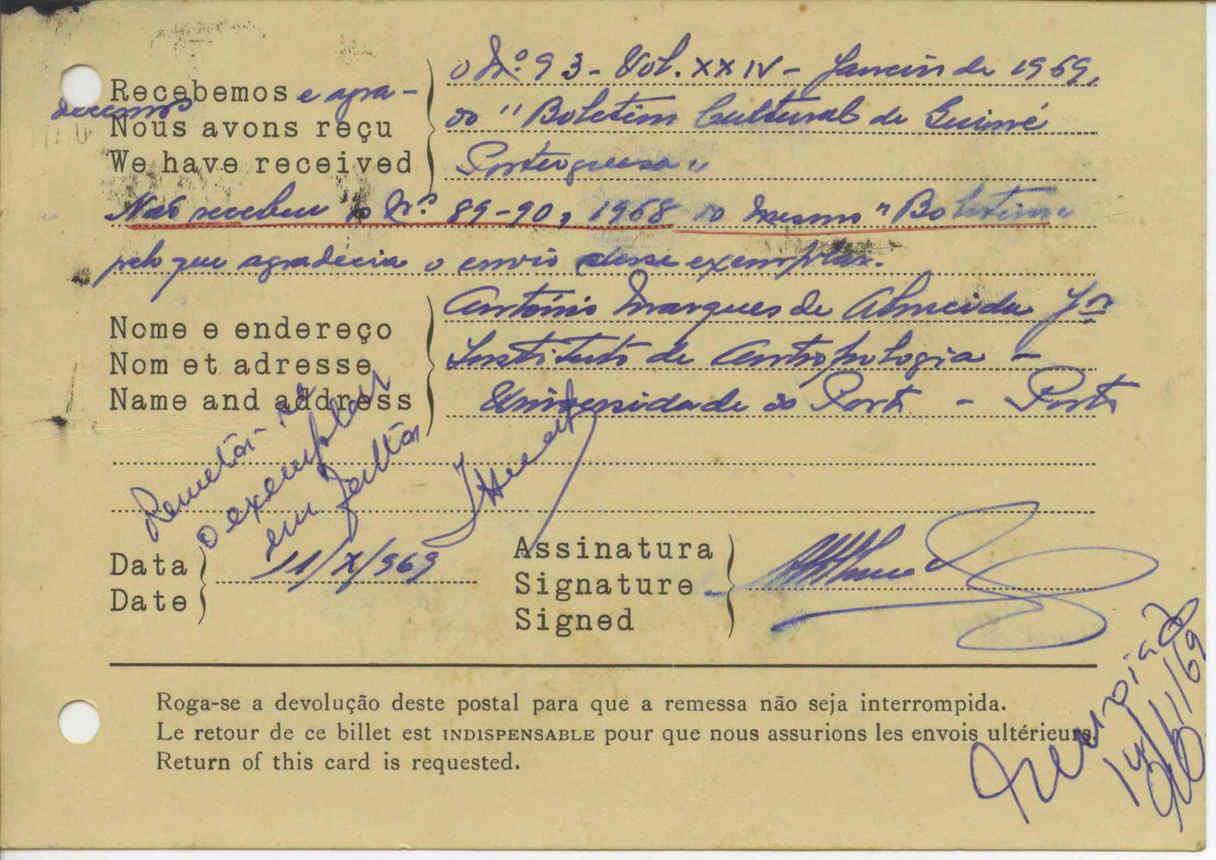 Recebemos e agra-
decemos
Nous avons reçu
We have received
o Nº 93 - Vol. XXIV - Janeiro de 1969,
do "Boletim Cultural da Guiné
Portuguesa"
Não recebeu o Nº 89-90, 1968 do mesmo "Boletim"
pelo que agradecia o envio desse exemplar.
Nome e endereço
Nom et adresse
Name and address
António Marques de Almeida Jor
Instituto de Antropologia -
Universidade do Porto - Porto
Remetir-se
o exemplar
em falta
Data
Date
11/X/969
Assinatura
Signature
Signed
Roga-se a devolução deste postal para que a remessa não seja interrompida.
Le retour de ce billet est INDISPENSABLE pour que nous assurions les envois ultérieurs.
Return of this card is requested.
14/11/69